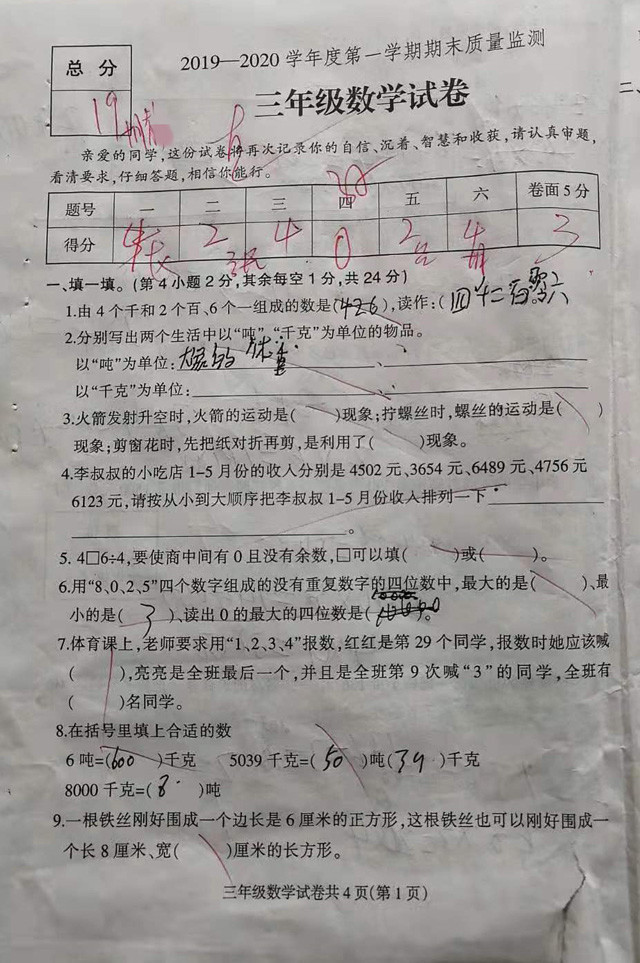 总 分
19
2019—2020 学年度第一学期期末质量监测
三年级数学试卷
亲爱的同学,这份试卷将再次记录你的自信、沉着、智慧和收获,请认真审题,
看清要求,仔细答题,相信你能行。
题号 一 二 三 四 五 六 卷面5分
得分 2 4 0 2 4 3
一、填一填。(第4小题2分,其余每空1分,共24分)
1.由4个千和2个百、6个一组成的数是(426),读作:(四十二百零六
2.分别写出两个生活中以“吨”、“千克”为单位的物品。
以“吨”为单位: 、
以“千克”为单位: 、
3.火箭发射升空时,火箭的运动是( )现象;拧螺丝时,螺丝的运动是( )
现象;剪窗花时,先把纸对折再剪,是利用了( )现象。
4.李叔叔的小吃店1-5月份的收入分别是4502元、3654元、6489元、4756元
6123元,请按从小到大顺序把李叔叔1-5月份收入排列一下
。
5. 4□6÷4,要使商中间有0且没有余数,□可以填( )或( )。
6.用“8、0、2、5”四个数字组成的没有重复数字的四位数中,最大的是( )、最
小的是( 3 )、读出0的最大的四位数是( )。
7.体育课上,老师要求用“1、2、3、4”报数,红红是第29个同学,报数时她应该喊
( ),亮亮是全班最后一个,并且是全班第9次喊“3”的同学,全班有
( )名同学。
8.在括号里填上合适的数
6吨=(600)千克 5039千克=( 50 )吨(39)千克
8000千克=( 8 )吨
9.一根铁丝刚好围成一个边长是6厘米的正方形,这根铁丝也可以刚好围成一
个长8厘米、宽( )厘米的长方形。
三年级数学试卷共4页(第1页)
二、